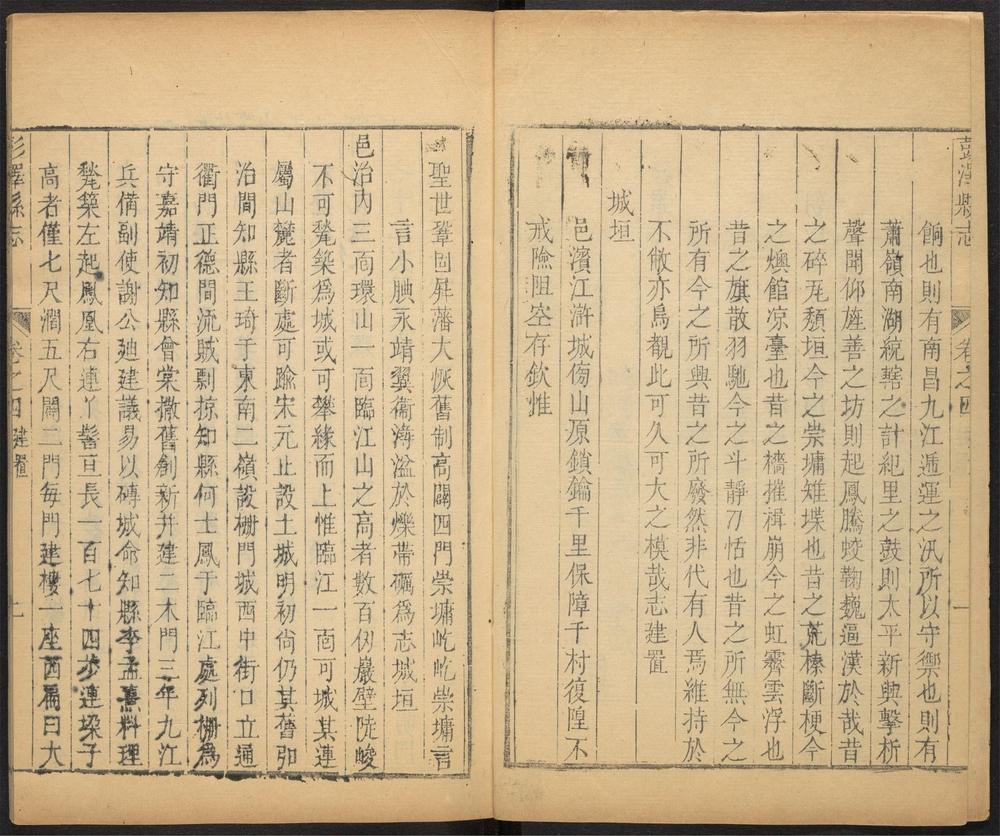 彭澤縣志
卷之四
一
餉也則有南昌九江遞運之汛所以守禦也則有
蕭嶺南湖統轄之計紀里之鼓則太平新興擊柝
聲聞仰旌善之坊則起鳳騰蛟鞠巍逼漢於哉昔
之碎瓦頽垣今之崇墉雉堞也昔之荒榛斷梗今
之燠館凉臺也昔之檣摧楫崩今之虹霽雲浮也
昔之旗散羽馳今之斗靜刀恬也昔之所無今之
所有今之所興昔之所廢然非代有人焉維持於
不敝亦烏覩此可久可大之模哉志建置
城垣
邑濱江滸城傍山原鎖鑰千里保障千村復隍不
戒險阻空存欽惟
聖世鞏固屏藩大恢舊制高闢四門崇墉屹屹崇墉言
言小腆永靖翼衛海溢於爍帶礪爲志城垣
邑治內三面環山一面臨江山之高者數百仞巖壁陡峻
不可甃築爲城或可攀緣而上惟臨江一面可城其連
屬山麓者斷處可踰宋元止設土城明初尚仍其舊弘
治間知縣王琦于東南二嶺設栅門城西中街口立通
衢門正德間流賊剽掠知縣何士鳳于臨江處列栅爲
守嘉靖初知縣曾棠撒舊創新并建二木門三年九江
兵備副使謝公廸建議易以磚城命知縣李孟
料理
甃築左起鳳凰右連丫髻亘長一百七十四步連垛子
高者僅七尺濶五尺闢二門每門建樓一座西扁曰大
彭澤縣志
卷之四
建置
二